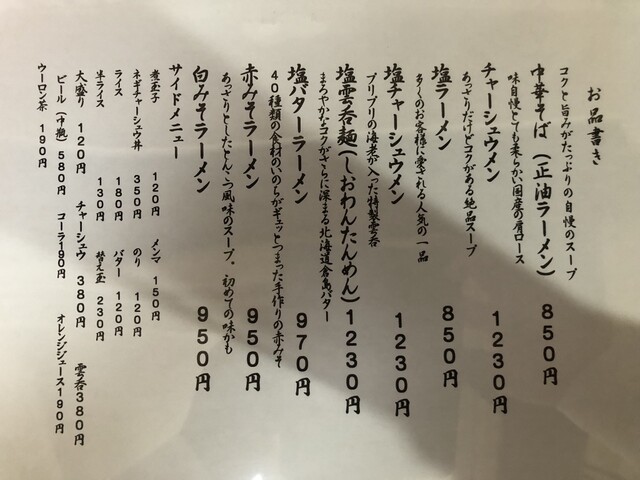 お品書き
コクと旨みがたっぷりの自慢のスープ
中華そば（正油ラーメン） 850円
味自慢とても柔らかい国産の肩ロース
チャーシュウメン 1230円
あっさりだけどコクがある絶品スープ
塩ラーメン 850円
多くのお客様に愛される人気の一品
塩チャーシュウメン 1230円
プリプリの海老が入った特製雲呑
塩雲呑麺（しおわんたんめん） 1230円
まろやかなコクがさらに深まる北海道倉島バター
塩バターラーメン 970円
40種類の食材のいのちがギュッとつまった手作りの赤みそ
赤みそラーメン 950円
あっさりとしたとんこつ風味のスープ。初めての味かも
白みそラーメン 950円
サイドメニュー
煮玉子 120円 メンマ 150円
ネギチャーシュウ丼 350円 のり 120円
ライス 180円 バター 120円
半ライス 130円 替え玉 230円
大盛り 120円 チャーシュウ 380円 雲呑 380円
ビール（中瓶） 580円 コーラ 190円 オレンジジュース 190円
ウーロン茶 190円